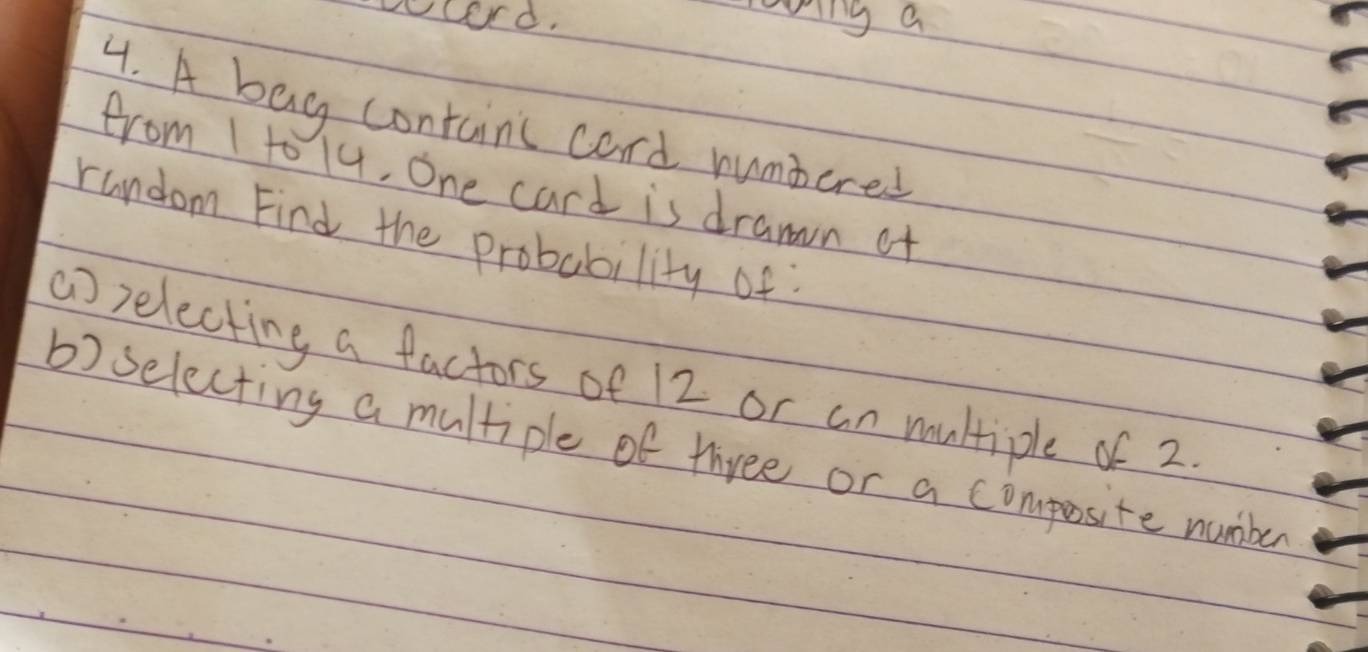 card.
a
4. A bag contains card numbered
from 1 to 14. One card is drawn at
random Find the probability of:
a) selecting a factors of 12 or an multiple of 2.
b) selecting a multiple of three or a composite number